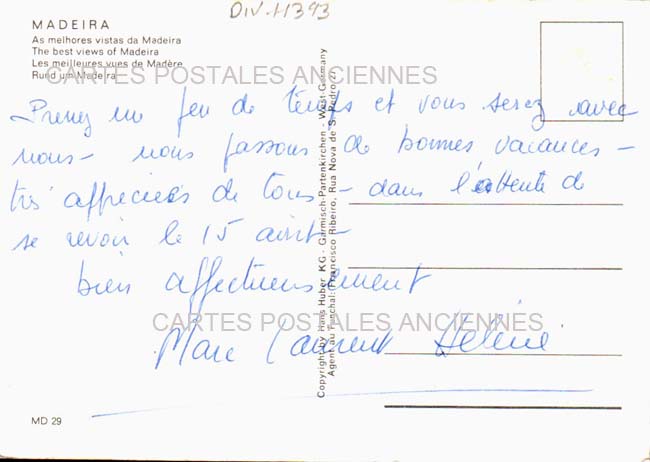 DIV-11393
MADEIRA
As melhores vistas da Madeira
The best views of Madeira
Les meilleures vues de Madère
Rund um Madeira
CARTES POSTALES ANCIENNES
Prenez un peu de temps et vous serez avec
nous - nous passons de bonnes vacances -
très appréciées de tous - dans l'attente de
se revoir le 15 août -
bien affectueusement
CARTES POSTALES ANCIENNES
Marc Laurent Hélène
MD 29
Copyright by Hans Huber KG - Garmisch-Partenkirchen - West-Germany
Agent au Funchal: (Francisco Ribeiro, Rua Nova de S. Pedro, 27)